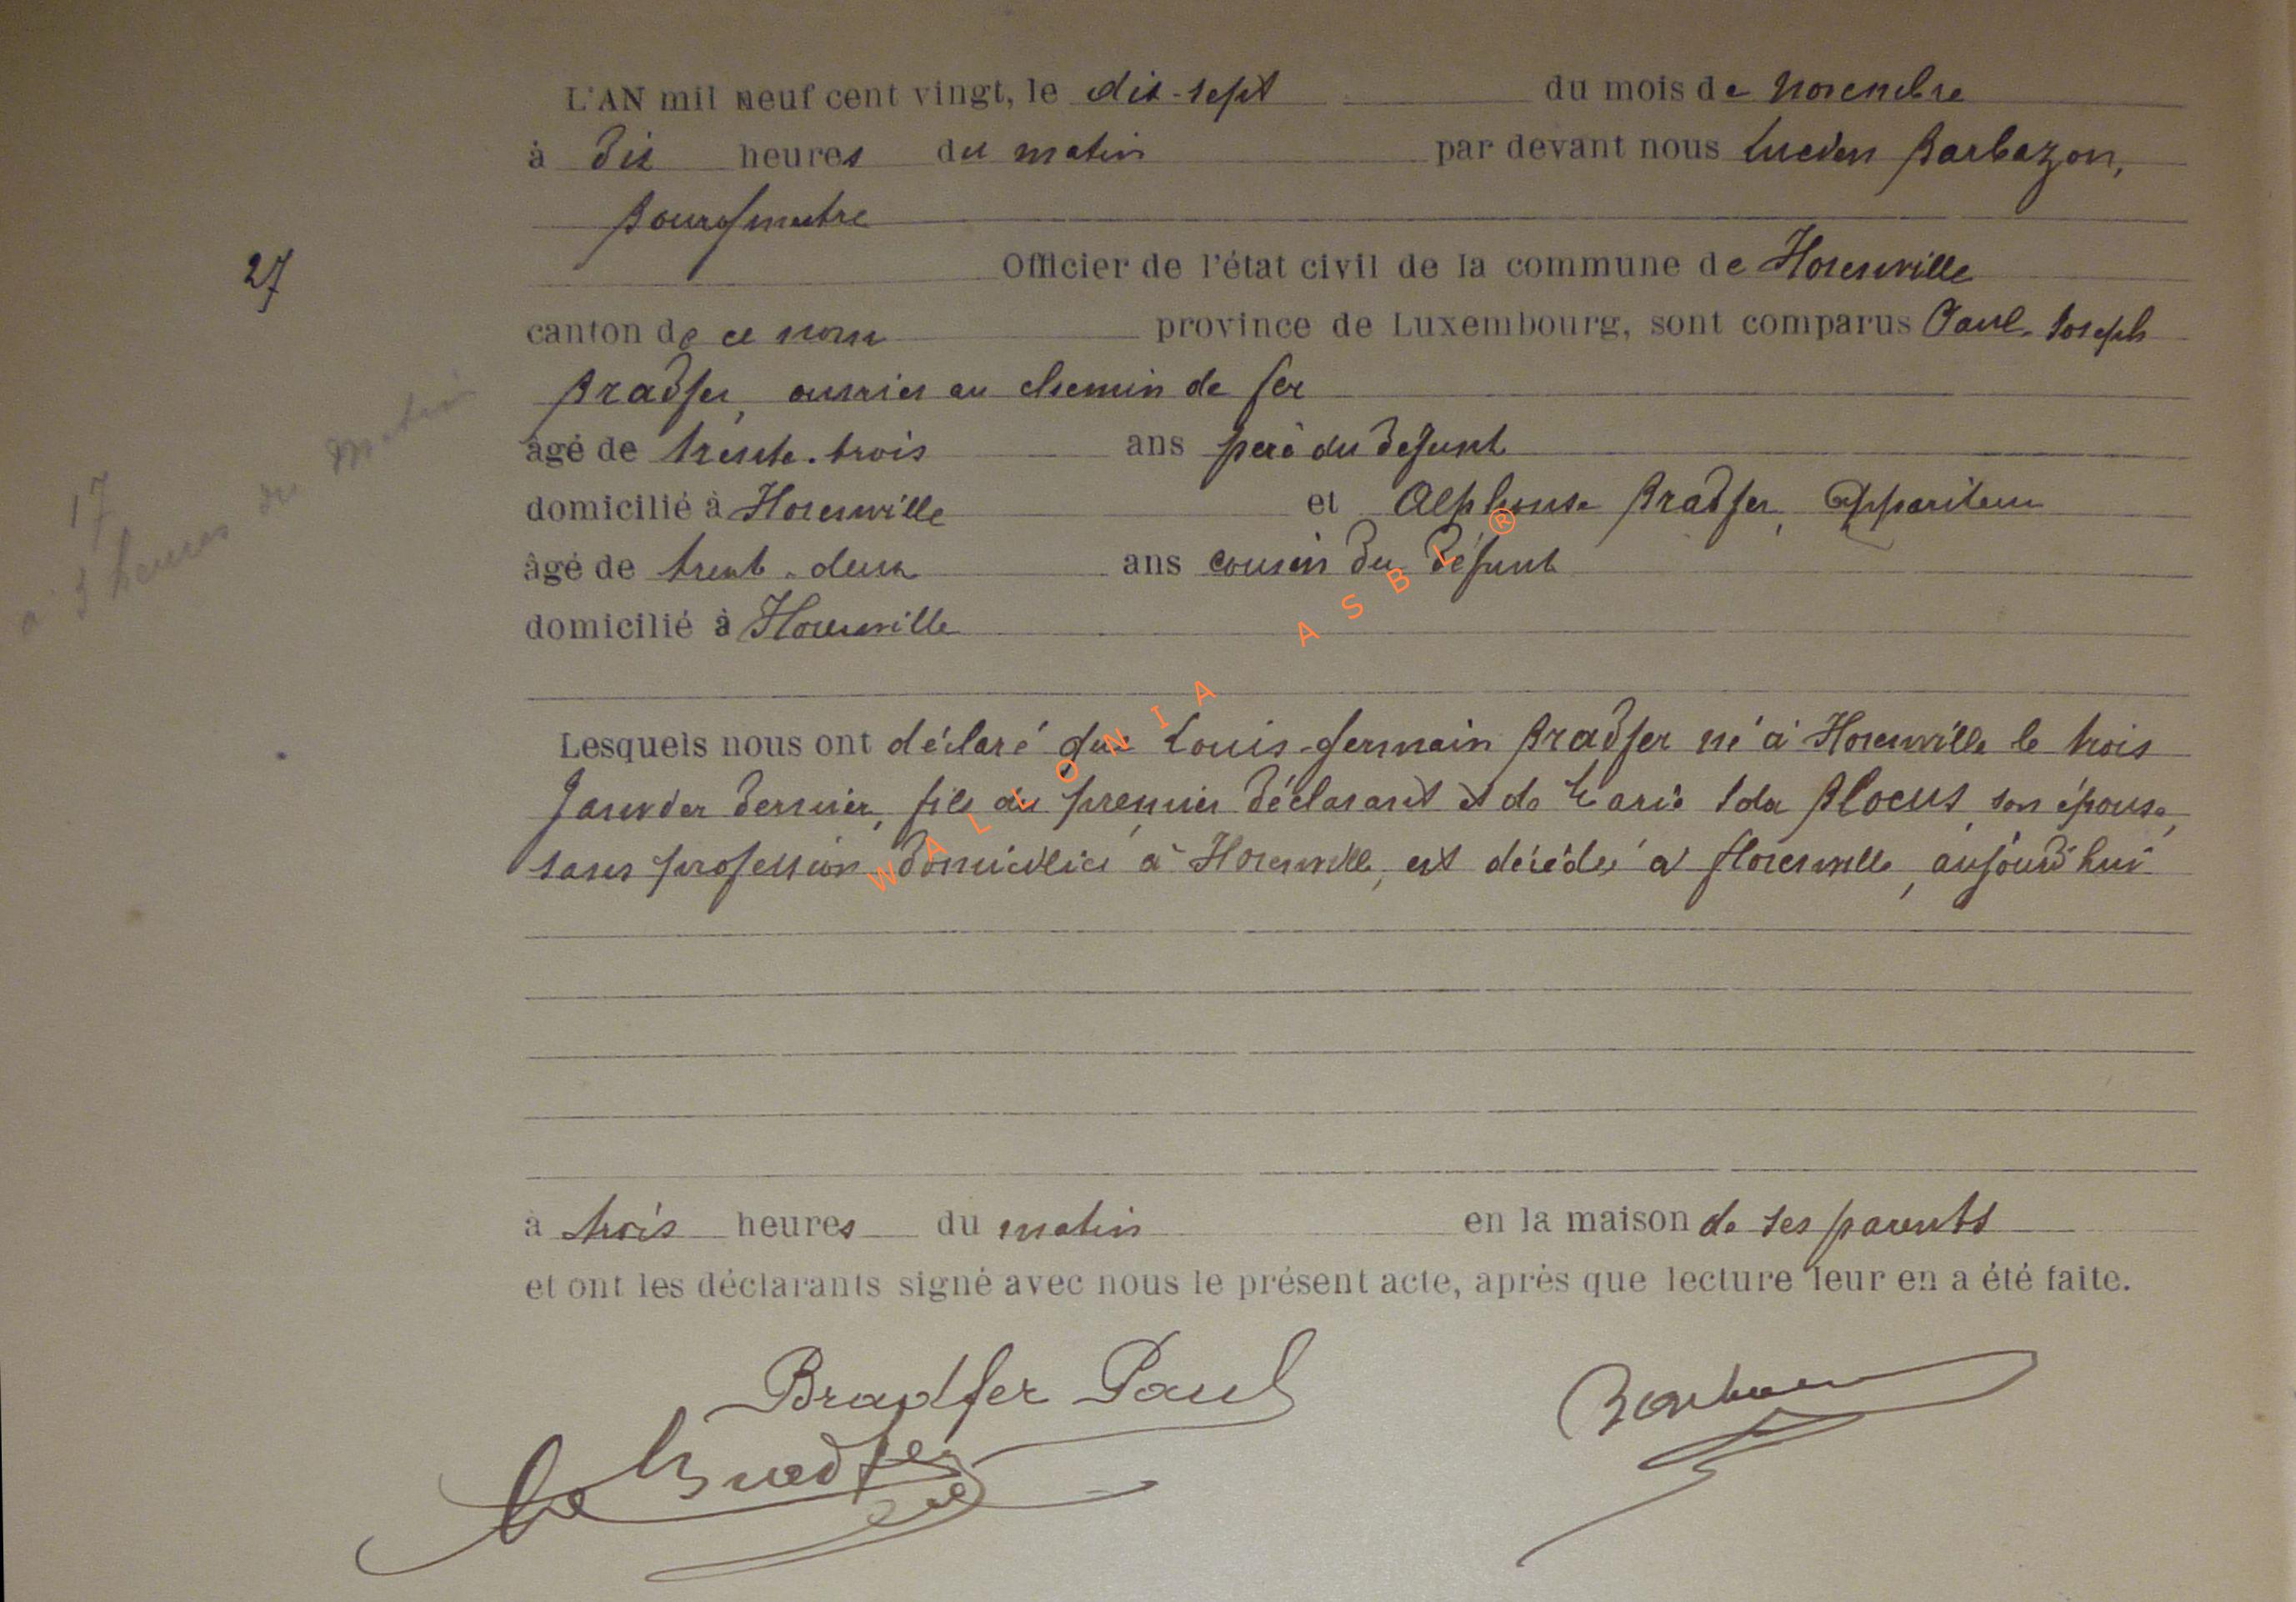 L'AN mil neuf cent vingt, le dix-sept du mois de novembre
à dix heures du matin par devant nous Lucien Barbazon,
Bourgmestre
27
Officier de l'état civil de la commune de Florenville
canton de ce nom province de Luxembourg, sont comparus Paul-Joseph
Bradfer, ouvrier au chemin de fer
âgé de trente-trois ans père du défunt
domicilié à Florenville et Alphonse Bradfer, Appariteur
âgé de trent-deux ans cousin du défunt
domicilié à Florenville
17
à 3 heures du Matin
Lesquels nous ont déclaré que Louis-Germain Bradfer né à Florenville le trois
Janvier dernier, fils du premier déclarant et de Marie Ida Blocus, son épouse,
sans profession domiciliée à Florenville, est décédé à Florenville, aujourd'hui
à trois heures du matin en la maison de ses parents
et ont les déclarants signé avec nous le présent acte, après que lecture leur en a été faite.
Bradfer Paul
Bradfer
WALLONIA ASBL ®